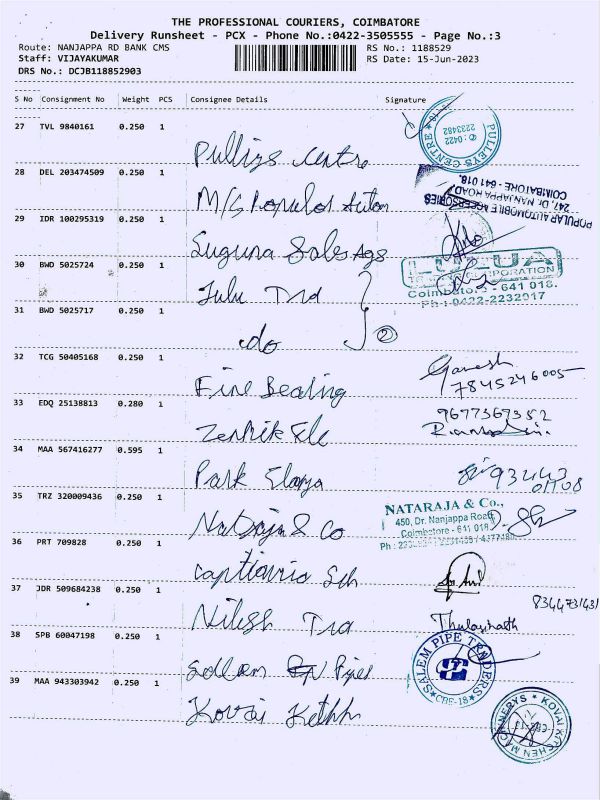 THE PROFESSIONAL COURIERS, COIMBATORE
Delivery Runsheet - PCX - Phone No.:0422-3505555 - Page No.:3
Route: NANJAPPA RD BANK CMS RS No.: 1188529
Staff: VIJAYAKUMAR RS Date: 15-Jun-2023
DRS No.: DCJB118852903
S No Consignment No Weight PCS Consignee Details Signature
27 TVL 9840161 0.250 1
Pulleys Centre
PULLEYS CENTRE
: 0422
2233482
28 DEL 203474509 0.250 1
M/s Popular Autom
POPULAR AUTOMOBILE ACCESSORIES
247, Dr. NANJAPPA ROAD,
COIMBATORE - 641 018.
29 IDR 100295319 0.250 1
Suguna Sales Ags
30 BWD 5025724 0.250 1
Julu Trd
CORPORATION
Coimbatore - 641 018.
Ph : 0422-2232017
31 BWD 5025717 0.250 1
do
2
32 TCG 50405168 0.250 1
Fine Bearing
Ganesh
7845246005
33 EDQ 25138813 0.280 1
Zenhik Ele
9677367352
34 MAA 567416277 0.595 1
Park Elanza
93443
01108
35 TRZ 320009436 0.250 1
Nataraja & Co
NATARAJA & Co.,
450, Dr. Nanjappa Road,
Coimbatore - 641 018
36 PRT 709828 0.250 1
Sch
37 JDR 509684238 0.250 1
Nilesh Tra
8344731431
38 SPB 60047198 0.250 1
Sallem Pipes
SALEM PIPE TRADERS
CBE-18
39 MAA 943303942 0.250 1
Kovai Kethh
KOVAI KITCHEN MACHINERYS